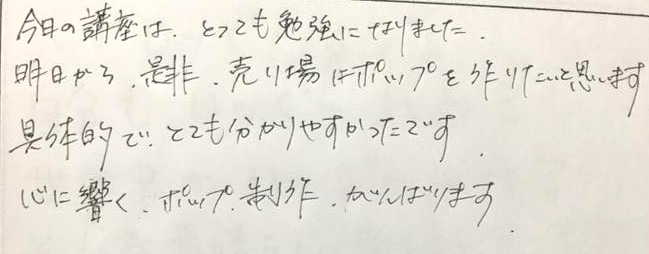 今日の講座は、とっても勉強になりました。
明日から、是非、売り場はポップを作りたいと思います
具体的で、とても分かりやすかったです。
心に響く、ポップ制作、がんばります。